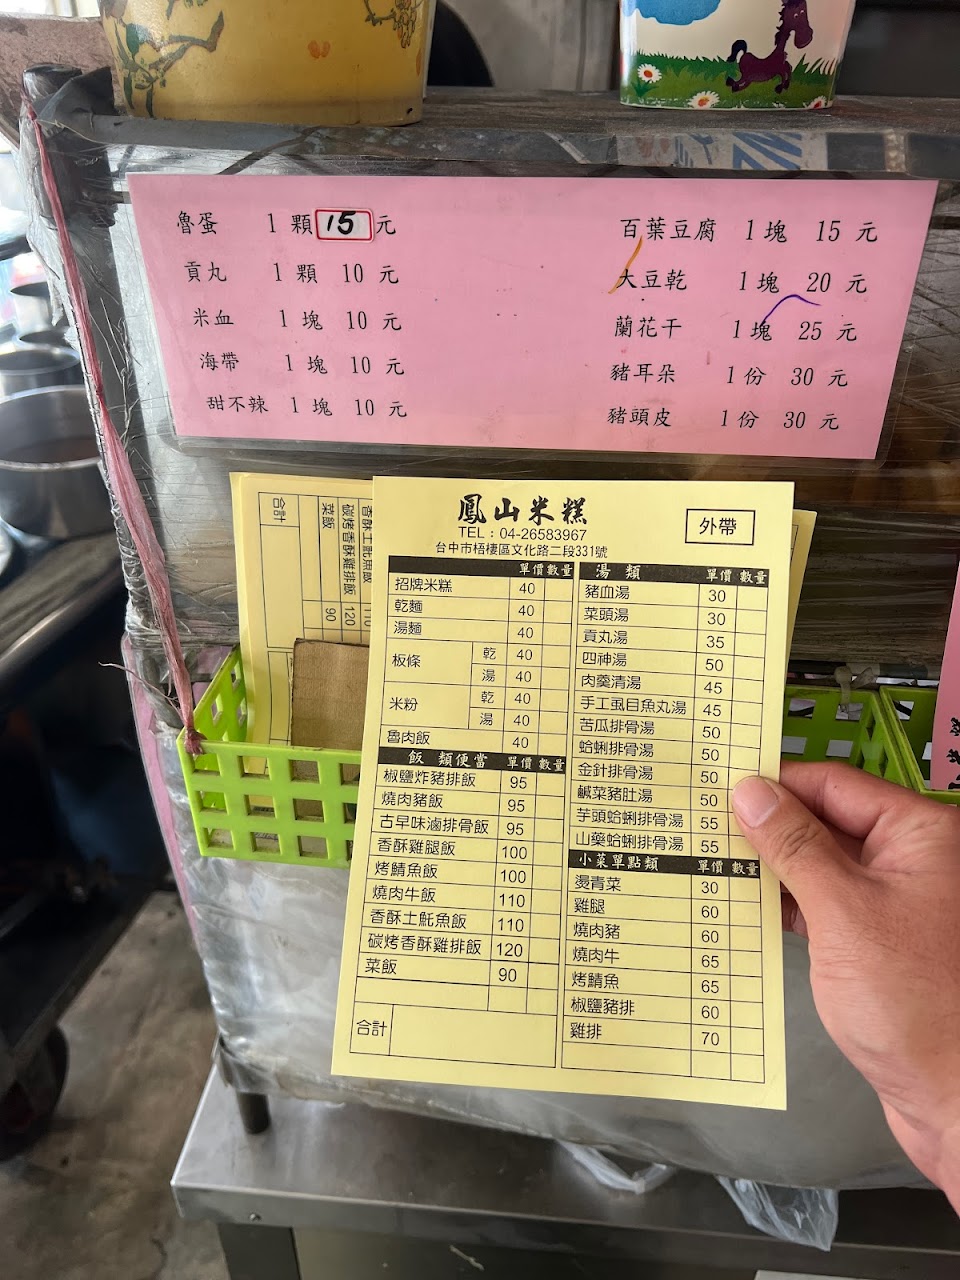 魯蛋 1 顆 15 元
貢丸 1 顆 10 元
米血 1 塊 10 元
海帶 1 塊 10 元
甜不辣 1 塊 10 元
百葉豆腐 1 塊 15 元
大豆乾 1 塊 20 元
蘭花干 1 塊 25 元
豬耳朵 1 份 30 元
豬頭皮 1 份 30 元
香酥土魠魚飯 110
碳烤香酥雞排飯 120
菜飯 90
合計
鳳山米糕
外帶
TEL:04-26583967
台中市梧棲區文化路二段331號
單價 數量
招牌米糕 40
乾麵 40
湯麵 40
板條 乾 40
湯 40
米粉 乾 40
湯 40
魯肉飯 40
飯 類便當 單價 數量
椒鹽炸豬排飯 95
燒肉豬飯 95
古早味滷排骨飯 95
香酥雞腿飯 100
烤鯖魚飯 100
燒肉牛飯 110
香酥土魠魚飯 110
碳烤香酥雞排飯 120
菜飯 90
合計
湯 類 單價 數量
豬血湯 30
菜頭湯 30
貢丸湯 35
四神湯 50
肉羹清湯 45
手工虱目魚丸湯 45
苦瓜排骨湯 50
蛤蜊排骨湯 50
金針排骨湯 50
鹹菜豬肚湯 50
芋頭蛤蜊排骨湯 55
山藥蛤蜊排骨湯 55
小菜單點類 單價 數量
燙青菜 30
雞腿 60
燒肉豬 60
燒肉牛 65
烤鯖魚 65
椒鹽豬排 60
雞排 70